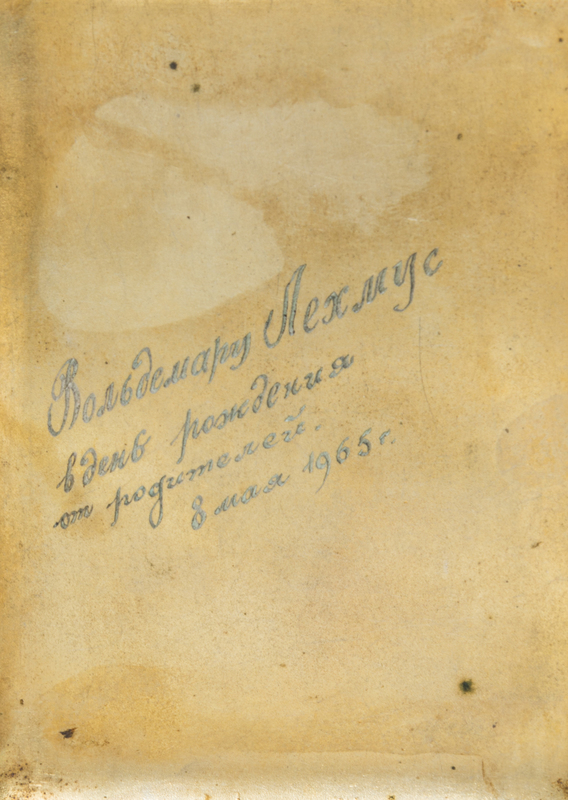 Вольдемару Лехмус
в день рождения
от родителей.
8 мая 1965 г.